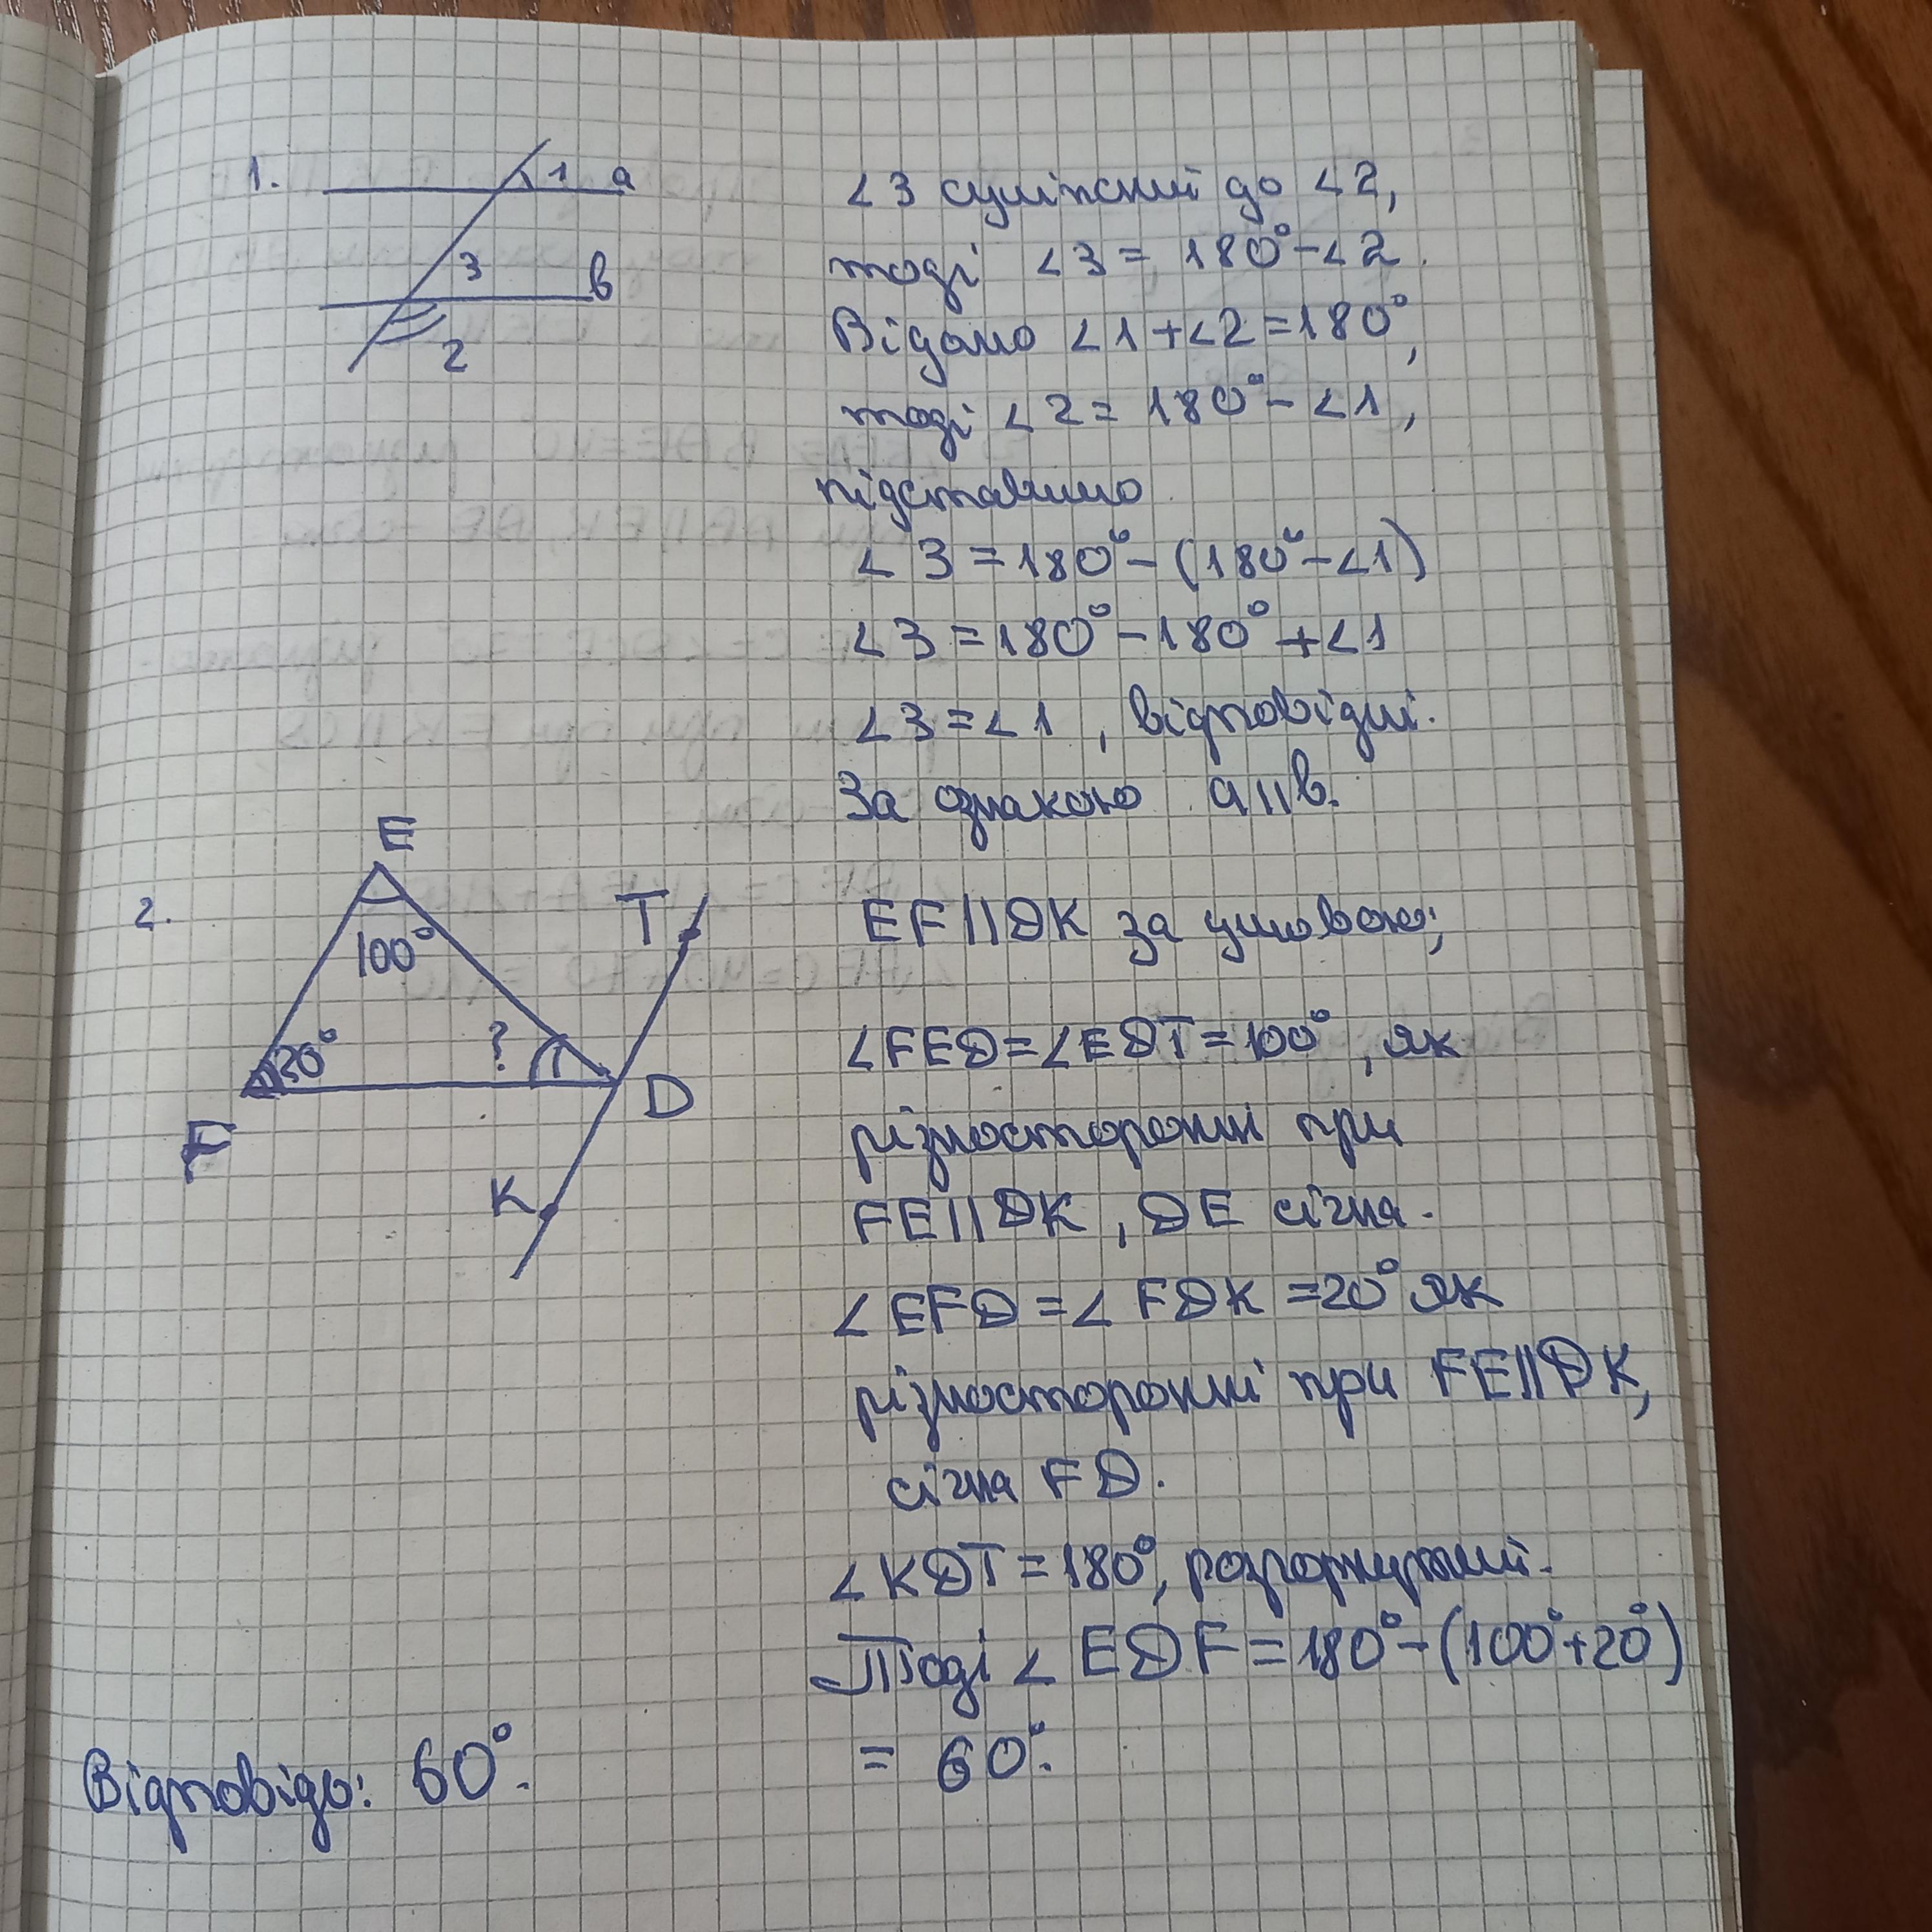 1.
1 a
3
в
2
∠3 суміжний до ∠2,
тоді ∠3 = 180° - ∠2.
Відомо ∠1 + ∠2 = 180°,
тоді ∠2 = 180° - ∠1,
підставимо
∠3 = 180° - (180° - ∠1)
∠3 = 180° - 180° + ∠1
∠3 = ∠1, відповідні.
За ознакою a || в.
2.
E
100°
T
20°
?
F
D
K
EF || DK за умовою;
∠FED = ∠EDT = 100°, як
різносторонні при
FE || DK, DE січна.
∠EFD = ∠FDK = 20° як
різносторонні при FE || DK,
січна FD.
∠KDT = 180°, розгорнутий.
Тоді ∠EDF = 180° - (100° + 20°)
= 60°.
Відповідь: 60°.